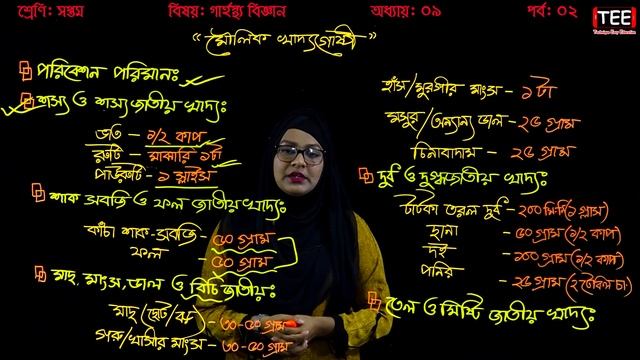 শ্রেণি: সপ্তম
বিষয়: গার্হস্থ্য বিজ্ঞান
অধ্যায়: ০৯
পর্ব: ০২
TEE
Technique Easy Education
"মৌলিক খাদ্যগোষ্ঠী"
পরিবেশন পরিমানঃ
শস্য ও শস্য জাতীয় খাদ্যঃ
ভাত - ১/২ কাপ
রুটি - মাঝারি ১টা
পাউরুটি - ১ স্লাইস
শাক সবজি ও ফল জাতীয় খাদ্যঃ
কাঁচা শাক-সবজি - ৫০ গ্রাম
ফল - ৫০ গ্রাম
মাছ, মাংস, ডাল ও বিচি জাতীয়ঃ
মাছ (ছোট/বড়) - ৩০-৪০ গ্রাম
গরু/খাসীর মাংস - ৩০-৪০ গ্রাম
হাঁস/মুরগীর মাংস - ১টা
মসুর/অন্যান্য ডাল - ২৫ গ্রাম
চিনাবাদাম - ২৫ গ্রাম
দুধ ও দুগ্ধজাতীয় খাদ্যঃ
টাটকা তরল দুধ - ২০০ মিলি (১ গ্লাস)
ছানা - ৫০ গ্রাম (১/২ কাপ)
দই - ১০০ গ্রাম (১/২ কাপ)
পনির - ২৫ গ্রাম (২ টেবিল চা:)
তেল ও মিষ্টি জাতীয় খাদ্যঃ